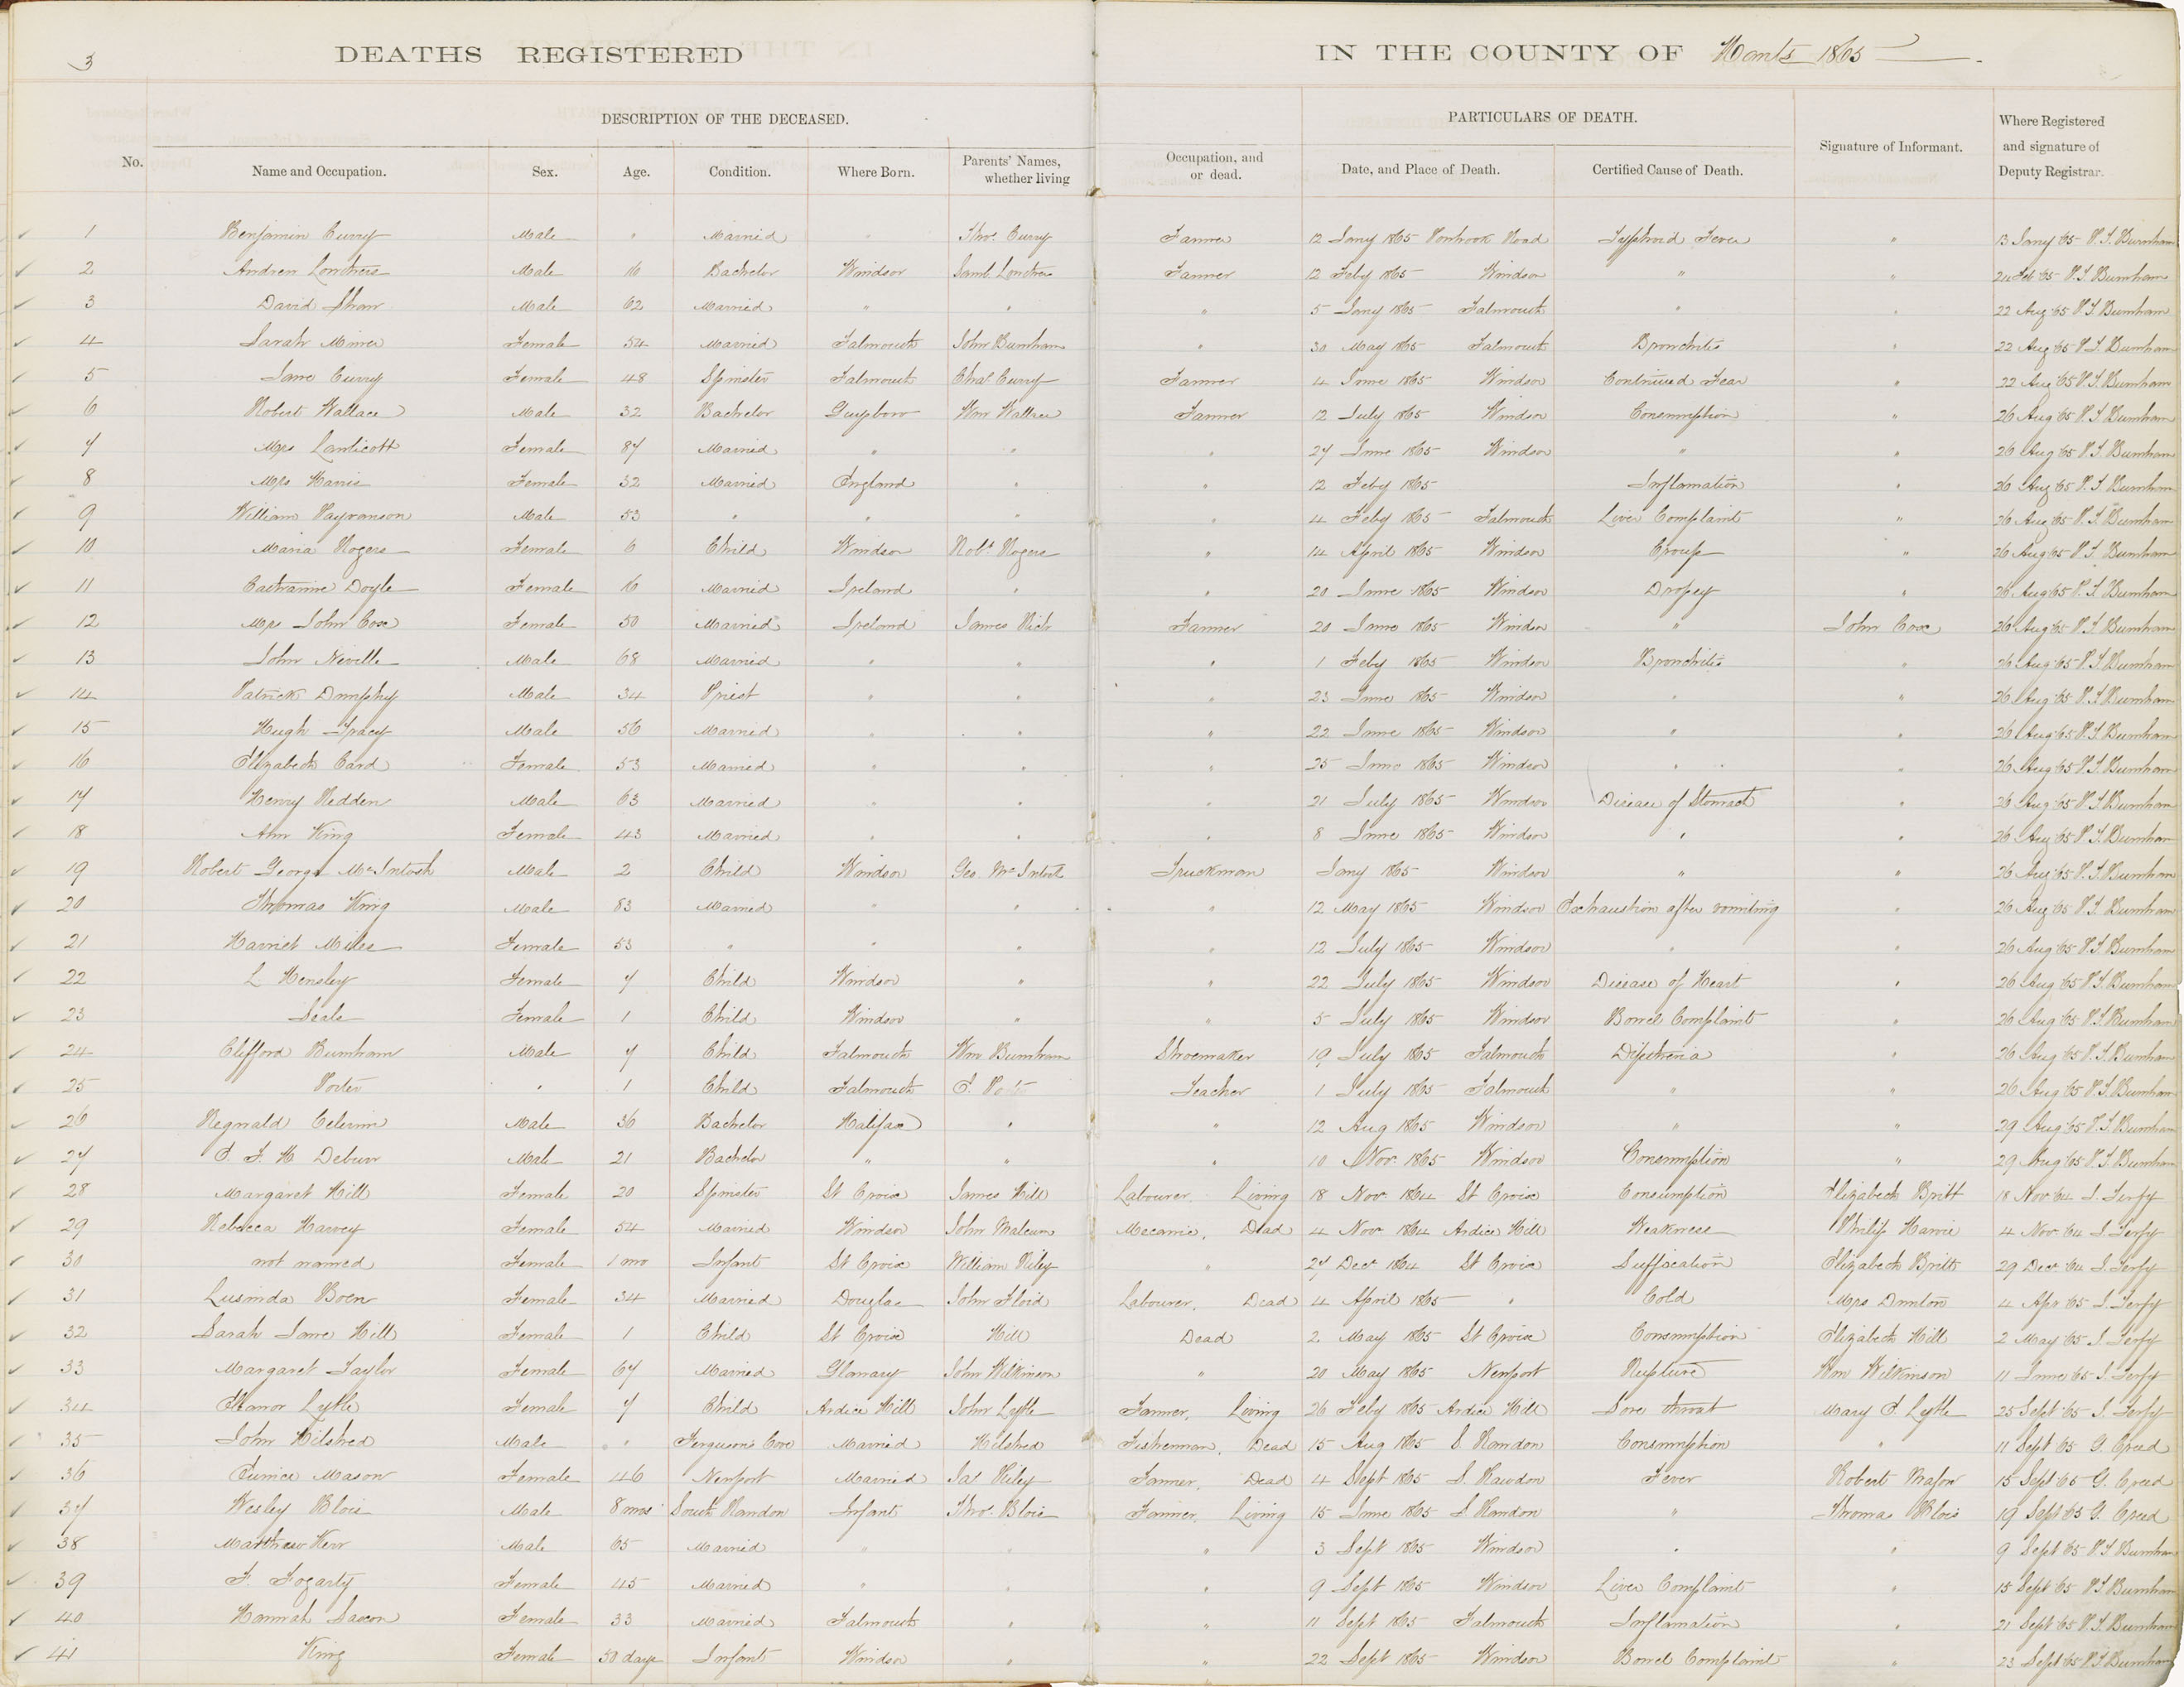 3
DEATHS REGISTERED IN THE COUNTY OF Hants 1865
DESCRIPTION OF THE DECEASED. PARTICULARS OF DEATH.
No. Name and Occupation. Sex. Age. Condition. Where Born. Parents' Names, whether living Occupation, and or dead. Date, and Place of Death. Certified Cause of Death. Signature of Informant. Where Registered and signature of Deputy Registrar.
1 Benjamin Curry Male " Married " Thos. Curry Farmer 12 Jany 1865 Road Typhoid Fever " 13 Jany 65 P.S. Burnham
2 Andrew Male 16 Bachelor Windsor Saml Farmer 12 Feby 1865 Windsor " " 24 Feb 65 P.S. Burnham
3 David Shaw Male 62 Married " " " 5 Jany 1865 Falmouth " " 22 Aug 65 P.S. Burnham
4 Sarah Female 54 Married Falmouth John Burnham " 30 May 1865 Falmouth Bronchitis " 22 Aug 65 P.S. Burnham
5 Jane Curry Female 48 Spinster Falmouth Chas Curry Farmer 4 June 1865 Windsor Continued " 22 Aug 65 P.S. Burnham
6 Robert Wallace Male 32 Bachelor Guysboro Wm Wallace Farmer 12 July 1865 Windsor Consumption " 26 Aug 65 P.S. Burnham
7 Mrs Female 87 Married " " " 27 June 1865 Windsor " " 26 Aug 65 P.S. Burnham
8 Mrs Harris Female 32 Married England " " 12 Feby 1865 Inflamation " 26 Aug 65 P.S. Burnham
9 William Male 53 " " " " 4 Feby 1865 Falmouth Liver Complaint " 26 Aug 65 P.S. Burnham
10 Maria Rogers Female 6 Child Windsor Robt Rogers " 14 April 1865 Windsor Croup " 26 Aug 65 P.S. Burnham
11 Cathranine Doyle Female 16 Married Ireland " " 20 June 1865 Windsor Dropsy " 26 Aug 65 P.S. Burnham
12 Mrs John Cox Female 50 Married Ireland James Rich Farmer 20 June 1865 Windsor " John Cox 26 Aug 65 P.S. Burnham
13 John Neville Male 68 Married " " " 1 Feby 1865 Windsor Bronchitis " 26 Aug 65 P.S. Burnham
14 Patrick Dumphy Male 34 Priest " " " 23 June 1865 Windsor " " 26 Aug 65 P.S. Burnham
15 Hugh Tracy Male 56 Married " " " 22 June 1865 Windsor " " 26 Aug 65 P.S. Burnham
16 Elizabeth Card Female 53 Married " " " 25 June 1865 Windsor " " 26 Aug 65 P.S. Burnham
17 Henry Redden Male 63 Married " " " 21 July 1865 Windsor Disease of Stomach " 26 Aug 65 P.S. Burnham
18 Ann King Female 43 Married " " " 8 June 1865 Windsor " " 26 Aug 65 P.S. Burnham
19 Robert George McIntosh Male 2 Child Windsor Geo. McIntosh Truckman Jany 1865 Windsor " " 26 Aug 65 P.S. Burnham
20 Thomas King Male 83 Married " " " 12 May 1865 Windsor Exhaustion after vomiting " 26 Aug 65 P.S. Burnham
21 Harriet Miles Female 53 " " " " 12 July 1865 Windsor " " 26 Aug 65 P.S. Burnham
22 L Hensley Female 7 Child Windsor " " 22 July 1865 Windsor Disease of Heart " 26 Aug 65 P.S. Burnham
23 Seals Female 1 Child Windsor " " 5 July 1865 Windsor Bowel Complaint " 26 Aug 65 P.S. Burnham
24 Clifford Burnham Male 7 Child Falmouth Wm Burnham Shoemaker 19 July 1865 Falmouth Diptheria " 26 Aug 65 P.S. Burnham
25 Porter " 1 Child Falmouth Teacher 1 July 1865 Falmouth " " 26 Aug 65 P.S. Burnham
26 Regnald Male 36 Bachelor Halifax " " 12 Aug 1865 Windsor " " 29 Aug 65 P.S. Burnham
27 Male 21 Bachelor " " " 10 Nov. 1865 Windsor Consumption " 29 Aug 65 P.S. Burnham
28 Margaret Hill Female 20 Spinster St Croix James Hill Labourer, Living 18 Nov. 1864 St Croix Consumption Elizabeth Britt 18 Nov 64
29 Rebecca Harvey Female 54 Married Windsor John Malcum Mecanic, Dead 4 Nov 1864 Ardice Hill Weakness Philip Harvie 4 Nov 64
30 not named Female 1 mo Infant St Croix William Riley " 27 Decr 1864 St Croix Suffocation Elizabeth Britt 29 Decr 64
31 Lusinda Boen Female 34 Married Douglas John Floid Labourer, Dead 4 April 1865 " Cold Mrs 4 Apr 65
32 Sarah Jane Hill Female 1 Child St Croix Hill Dead 2 May 1865 St Croix Consumption Elizabeth Hill 2 May 65
33 Margaret Taylor Female 67 Married John Wilkinson " 20 May 1865 Newport Rupture Wm Wilkinson 11 June 65
34 Elanor Lytle Female 7 Child Ardice Hill John Lytle Farmer, Living 26 Feby 1865 Ardice Hill Sore throat Mary E Lytle 25 Sept 65
35 John Hilshed Male " Ferguson's Cove Married Hilshed Fisherman, Dead 15 Aug 1865 S. Rawdon Consumption " 11 Sept 65 G. Creed
36 Eunice Mason Female 46 Newport Married Jas Riley Farmer, Dead 4 Sept 1865 S. Rawdon Fever Robert Mason 15 Sept 65 G. Creed
37 Wesley Blois Male 8 mos South Rawdon Infant Thos. Blois Farmer, Living 15 June 1865 S. Rawdon " Thomas Blois 19 Sept 65 G. Creed
38 Matthew Kerr Male 65 Married " " " 3 Sept 1865 Windsor " " 9 Sept 65 P.S. Burnham
39 F. Fogarty Female 45 Married " " " 9 Sept 1865 Windsor Liver Complaint " 15 Sept 65 P.S. Burnham
40 Hannah Saxon Female 33 Married Falmouth " " 11 Sept 1865 Falmouth Inflamation " 21 Sept 65 P.S. Burnham
41 King Female 50 days Infant Windsor " " 22 Sept 1865 Windsor Bowel Complaint " 23 Sept 65 P.S. Burnham